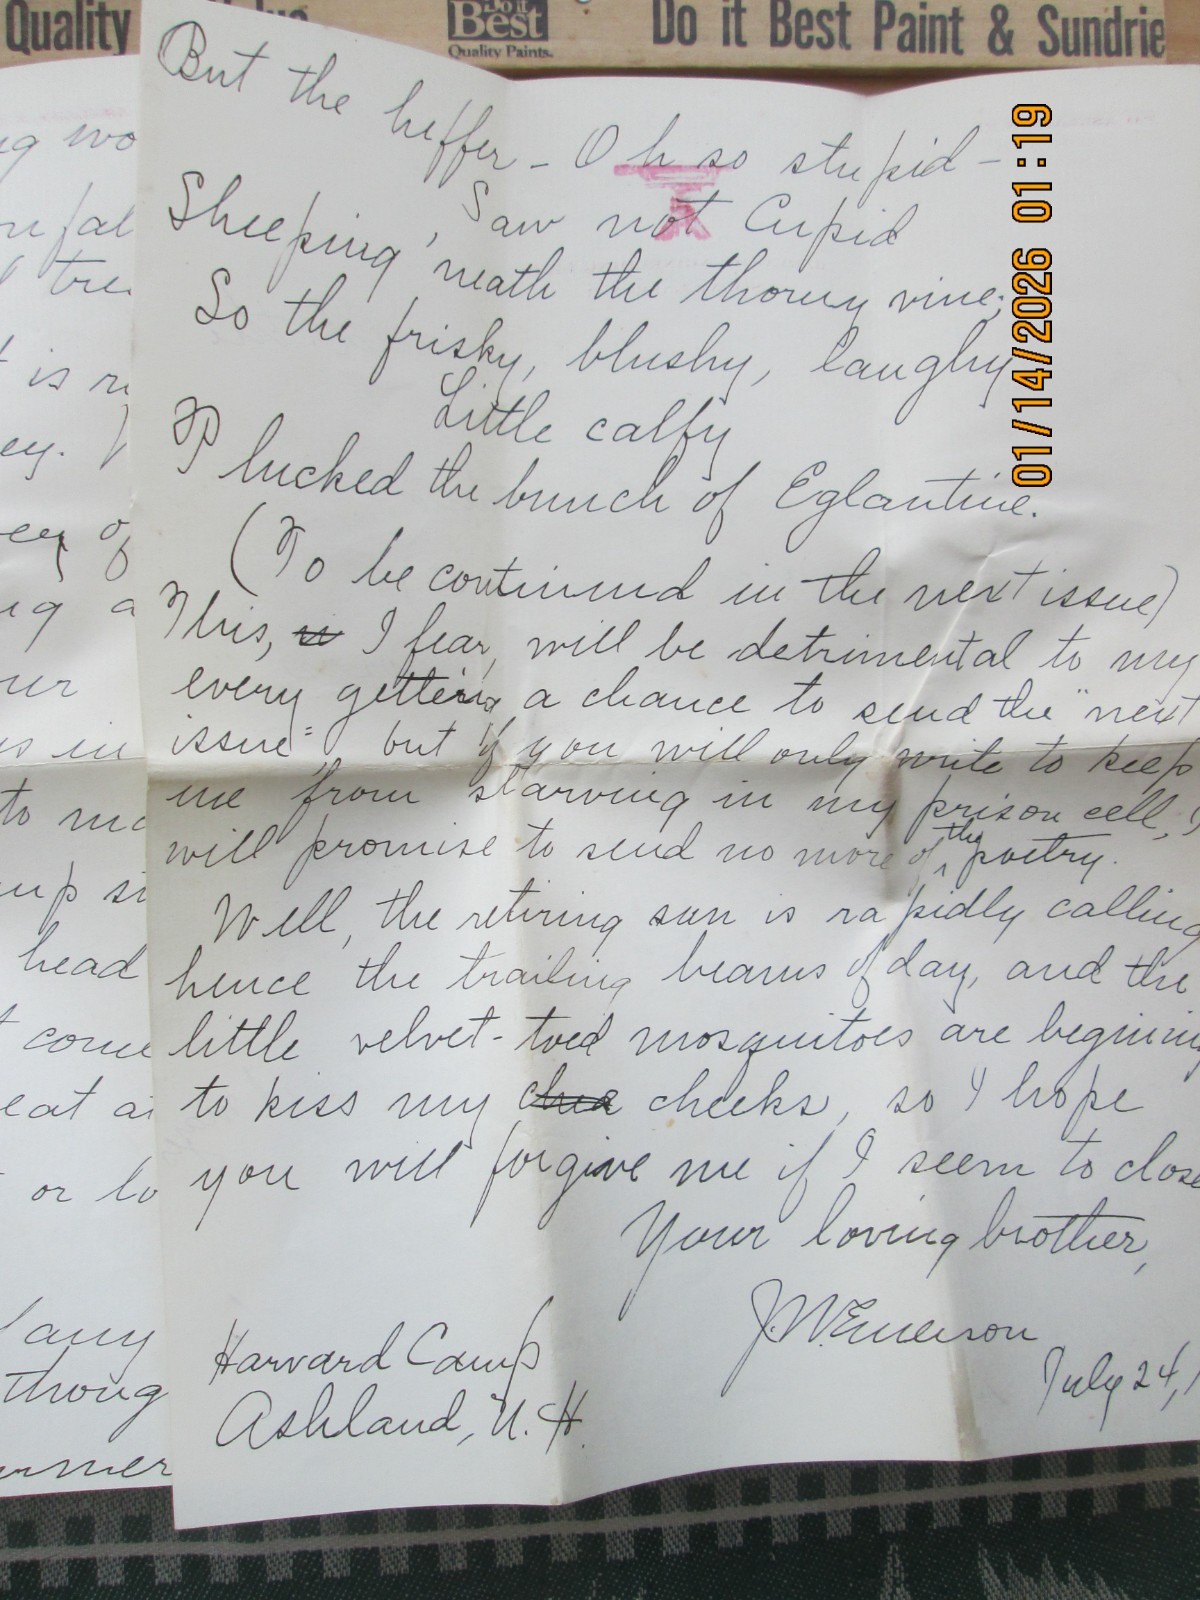 Quality
Do it
Best
Quality Paints.
Do it Best Paint & Sundrie
01/14/2026 01:19
But the heffer - Oh so stupid -
Saw not Cupid
Sheeping, 'neath the thorny vine;
So the frisky, blushy, laughy
Little calfy
Plucked the bunch of Eglantine.
(To be continued in the next issue)
This, is I fear, will be detrimental to my
every getting a chance to send the "next
issue", but if you will only write to keep
me from starving in my prison cell, I
will promise to send no more of the poetry.
Well, the retiring sun is rapidly calling
hence the trailing beams of day, and the
little velvet-toed mosquitoes are begining
to kiss my cheeks, so I hope
you will forgive me if I seem to close
Your loving brother,
J.W. Emerson
July 24, 1
Harvard Camp
Ashland, N.H.
is in
to
head
come
eat
or lo
any
thoug